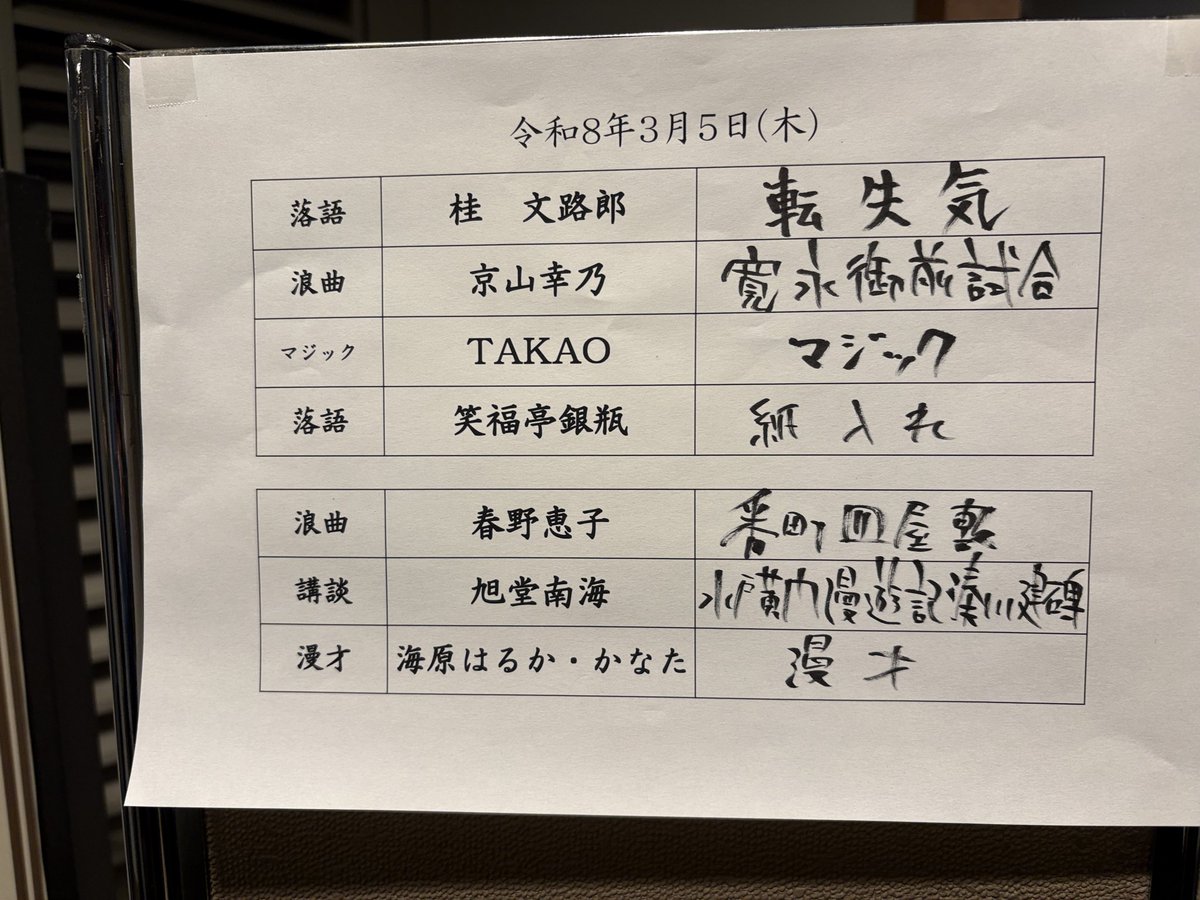 令和8年3月5日(木)
落語 桂 文路郎 転失気
浪曲 京山幸乃 寛永御前試合
マジック TAKAO マジック
落語 笑福亭銀瓶 紙入れ
浪曲 春野恵子 番町皿屋敷
講談 旭堂南海 水戸黄門漫遊記湊川建碑
漫才 海原はるか・かなた 漫才